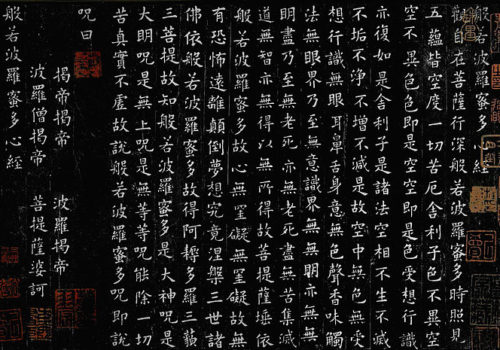 般若波羅蜜多心經
觀自在菩薩行深般若波羅蜜多時照見
五蘊皆空度一切苦厄舍利子色不異空
空不異色色即是空空即是色受想行識
亦復如是舍利子是諸法空相不生不滅
不垢不淨不增不減是故空中無色無受
想行識無眼耳鼻舌身意無色聲香味觸
法無眼界乃至無意識界無無明亦無無
明盡乃至無老死亦無老死盡無苦集滅
道無智亦無得以無所得故菩提薩埵依
般若波羅蜜多故心無罣礙無罣礙故無
有恐怖遠離顛倒夢想究竟涅槃三世諸
佛依般若波羅蜜多故得阿耨多羅三藐
三菩提故知般若波羅蜜多是大神呪是
大明呪是無上呪是無等等呪能除一切
苦真實不虛故說般若波羅蜜多呪即說
呪曰
揭帝揭帝 波羅揭帝
波羅僧揭帝 菩提薩婆訶
般若波羅蜜多心經